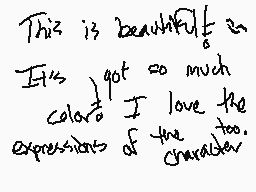 This is beautiful!
It's got so much
color! I love the
expressions of the character too.